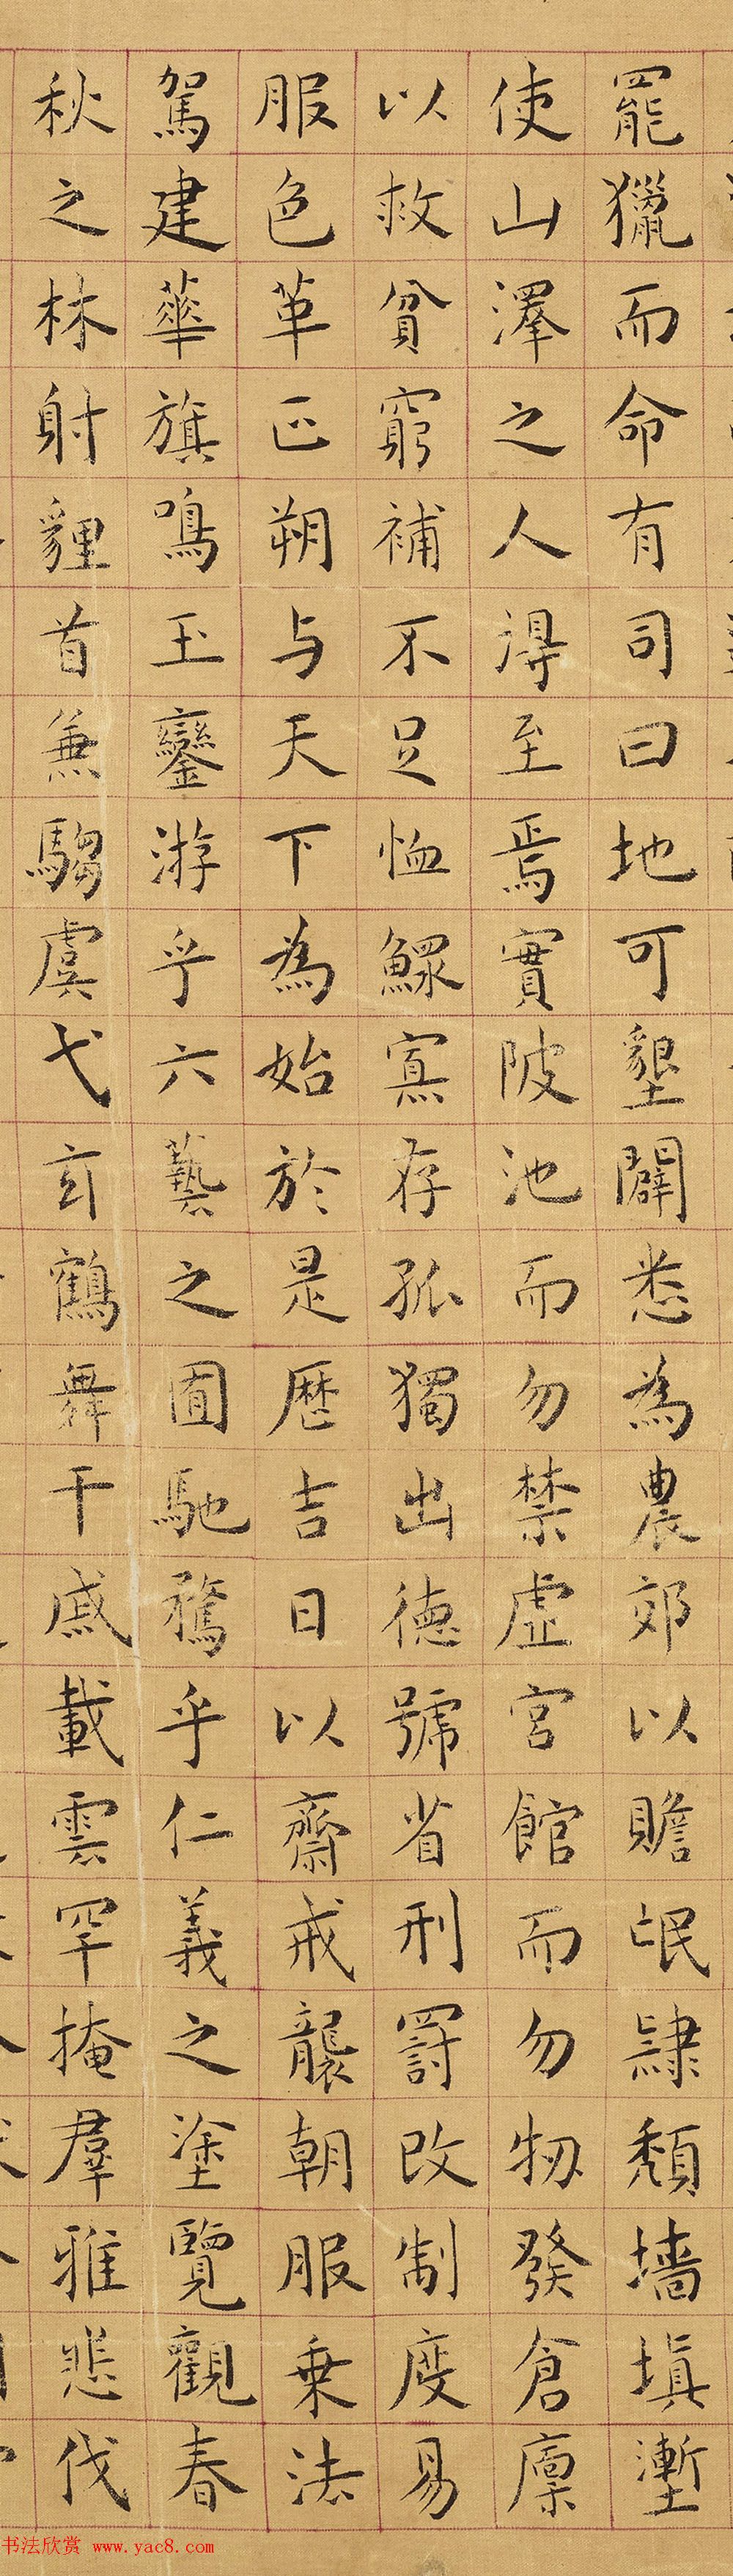 罷獵而命有司曰地可墾闢悉為農郊以贍氓隸頹墻填壍
使山澤之人得至焉實陂池而勿禁虛宮館而勿牣發倉廩
以救貧窮補不足恤鰥寡存孤獨出德號省刑罰改制度易
服色革正朔与天下為始於是歷吉日以齋戒襲朝服乗法
駕建華旗鳴玉鑾游乎六藝之囿馳騖乎仁義之塗覽觀春
秋之林射貍首兼騶虞弋玄鶴舞干戚載雲罕掩羣雅悲伐
书法欣赏 www.yac8.com